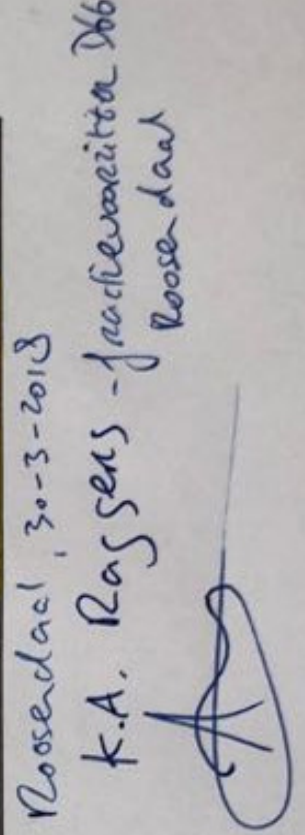 Roosendaal, 30-3-2018
K.A. Raggers - fractievoorzitter D66
Roosendaal